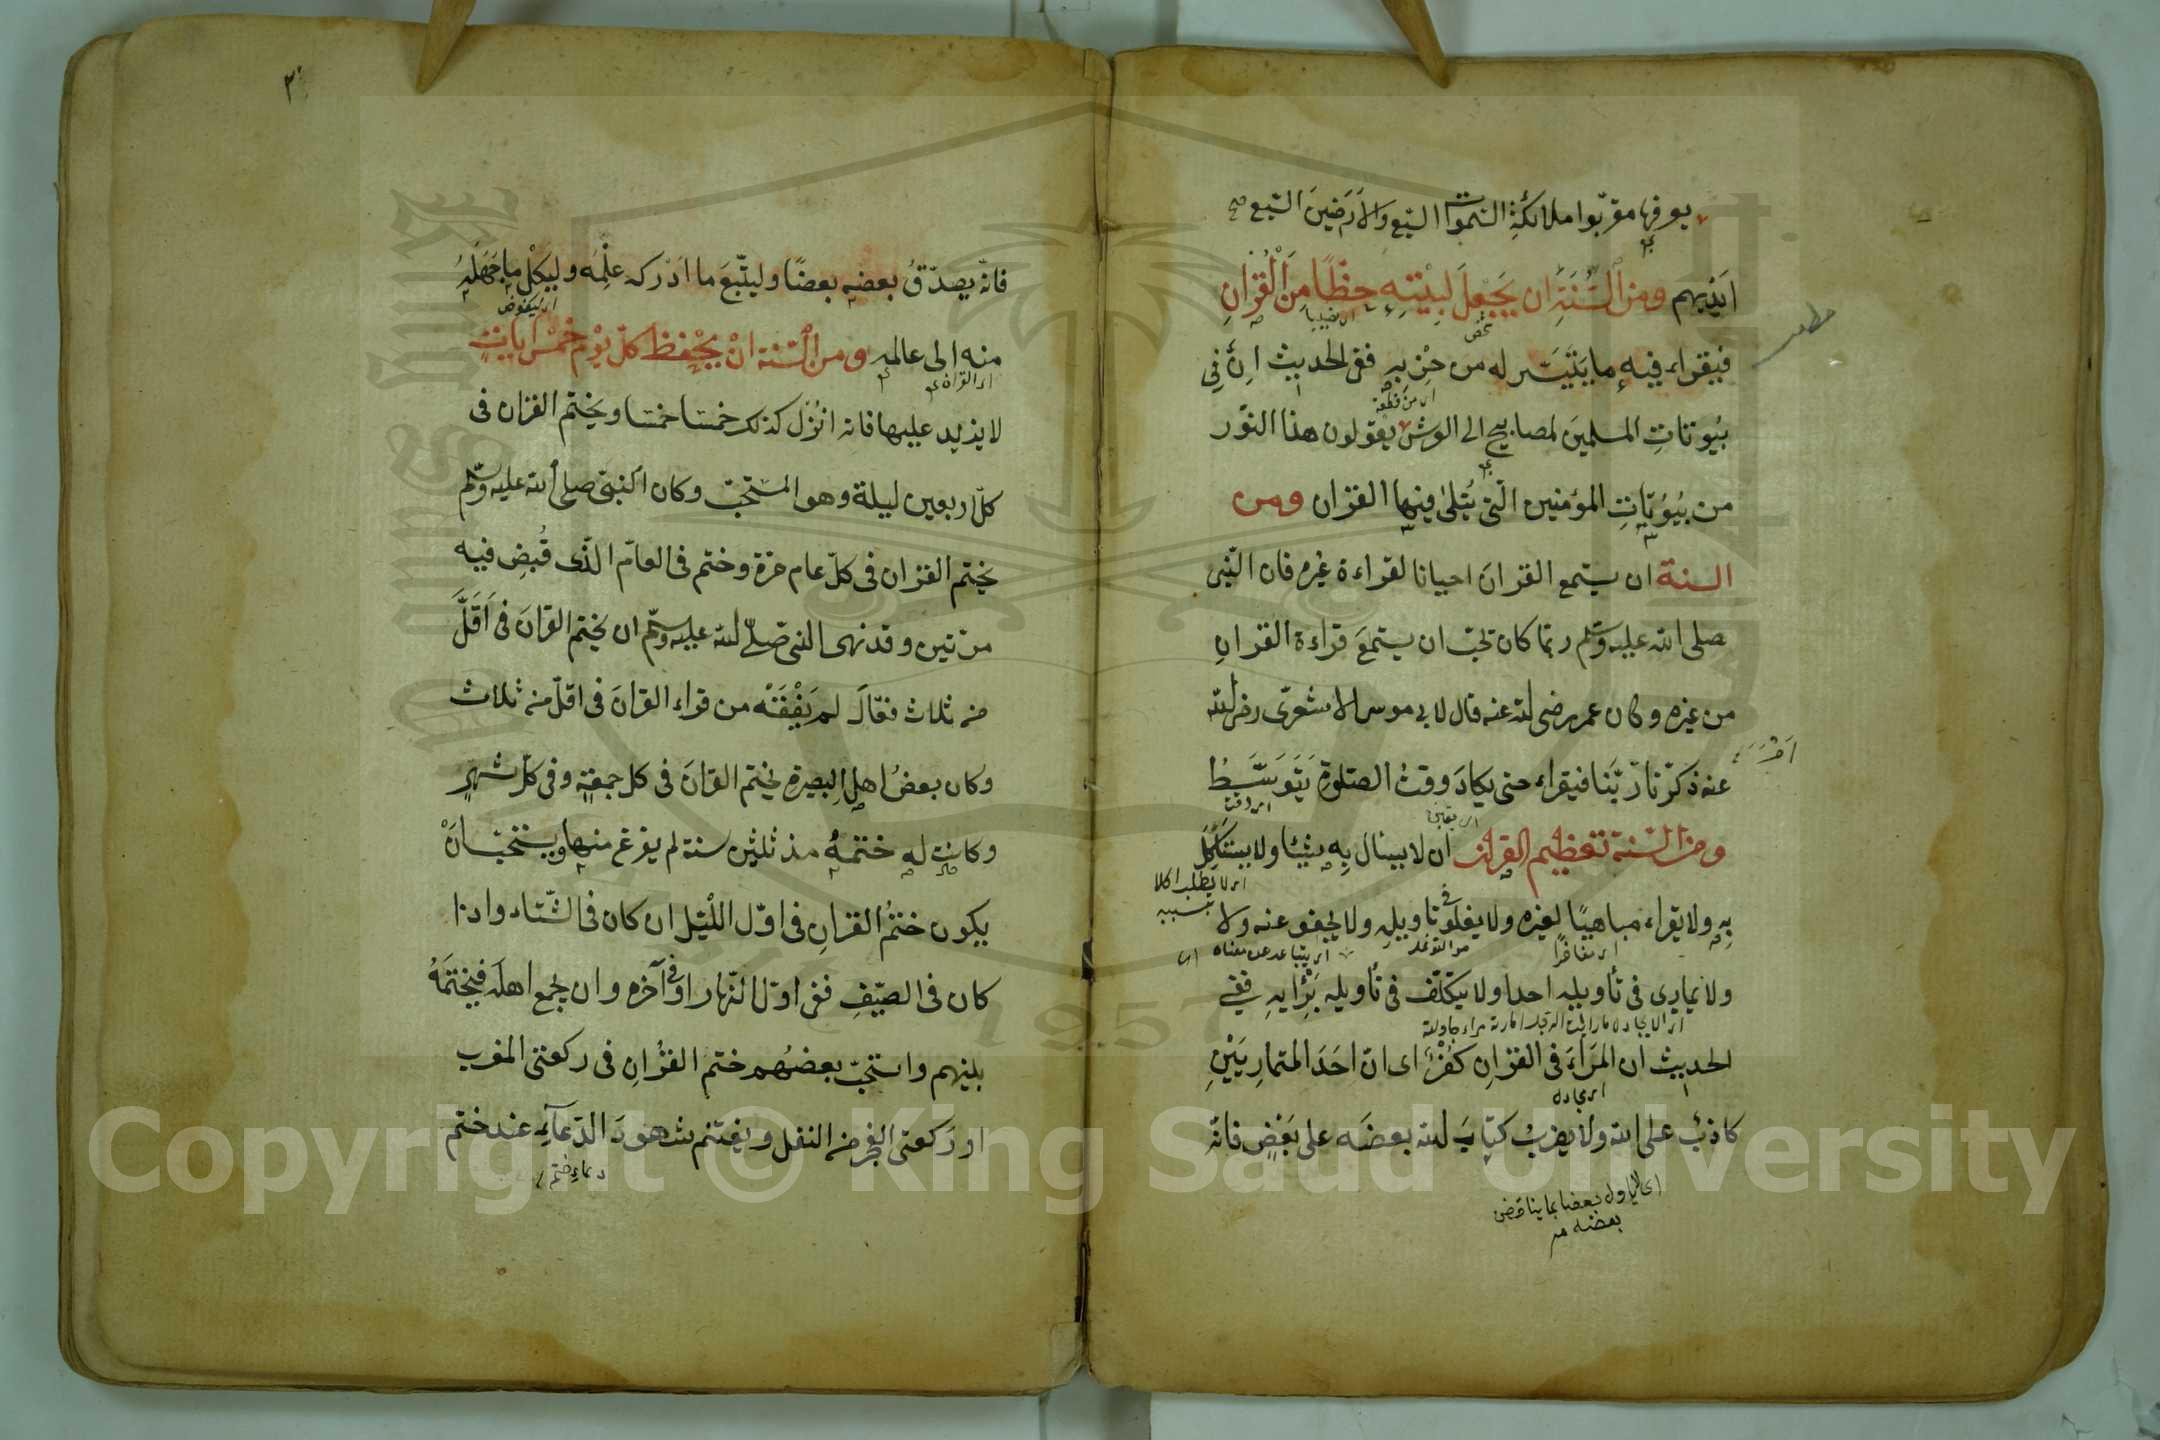 يعرفها مقربوا ملائكة السموات السبع والارضين السبع صح
ايديهم ومن السنة ان يجعل لبيته حظا من القران
اى نصيبا
فيقراء فيه ما يتيسر له من حزبه ففى الحديث ان فى
اى من قطعة
بيوتات المسلمين لمصابيح الى العرش يقولون هذا النور
من بيوتات المؤمنين التى يتلى فيها القران ومن
السنة ان يستمع القران احيانا لقراءة غيره فان النبى
صلى الله عليه وسلم ربما كان يحب ان يستمع قراءة القران
من غيره وكان عمر رضى الله عنه قال لابى موسى الاشعرى رضى الله
عنه ذكرنا ربنا فيقراء حتى يكاد وقت الصلوة يتوسط
ومن السنة تعظيم القران ان لا يسال به شيئا ولا يستاكل
اى لا يطلب اكلا
بسببه
به ولا يقراء مباهيا لغيره ولا يغلو فى تاويله ولا يجفو عنه ولا
اى مفاخرا
اى يتباعد عن معناه
ولا يمارى فى تأويله احدا ولا يتكلف فى تأويله برأيه ففى
الحديث ان المراء فى القران كفر اى ان احد المتماريين
اى مجادلة
كاذب على الله ولا يضرب كتاب الله بعضه على بعض فانه
بعضا بما يناقض
بعضه
٣٠
فانه يصدق بعضه بعضا وليتبع ما ادركه علمه وليكل ما جهله
اى ليفوض
منه الى عالمه ومن السنة ان يحفظ كل يوم خمس ايات
اى القران
لا يزيد عليها فانه انزل كذلك خمسا خمسا ويختم القران فى
كل اربعين ليلة وهو المستحب وكان النبى صلى الله عليه وسلم
يختم القران فى كل عام مرة وختم فى العام الذى قبض فيه
مرتين وقد نهى النبى صلى الله عليه وسلم ان يختم القران فى اقل
من ثلاث فقال لم يفقه من قراء القران فى اقل من ثلاث
وكان بعض اهل البصيرة يختم القران فى كل جمعة وفى كل شهر
وكانت له ختمة مذ ثلثين سنة لم يفرغ منها ويستحب ان
يكون ختم القران فى اول الليل ان كان فى الشتاء واذا
كان فى الصيف ففى اول النهار او فى آخره وان يجمع اهله فيختمه
بينهم واستحب بعضهم ختم القران فى ركعتى المغرب
او ركعتى الفجر من النفل ويغتنم شهود الدعاء عند ختم
دعاء ختم
Copyright © King Saud University
1957